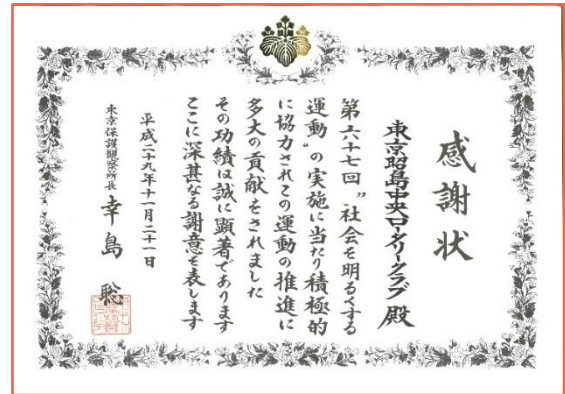 感謝状
東京昭島中央ロータリークラブ 殿
第六十七回”社会を明るくする
運動”の実施に当たり積極的
に協力されこの運動の推進に
多大の貢献をされました
その功績は誠に顕著であります
ここに深甚なる謝意を表します
平成二十九年十一月二十一日
東京保護観察所長 幸島 聡